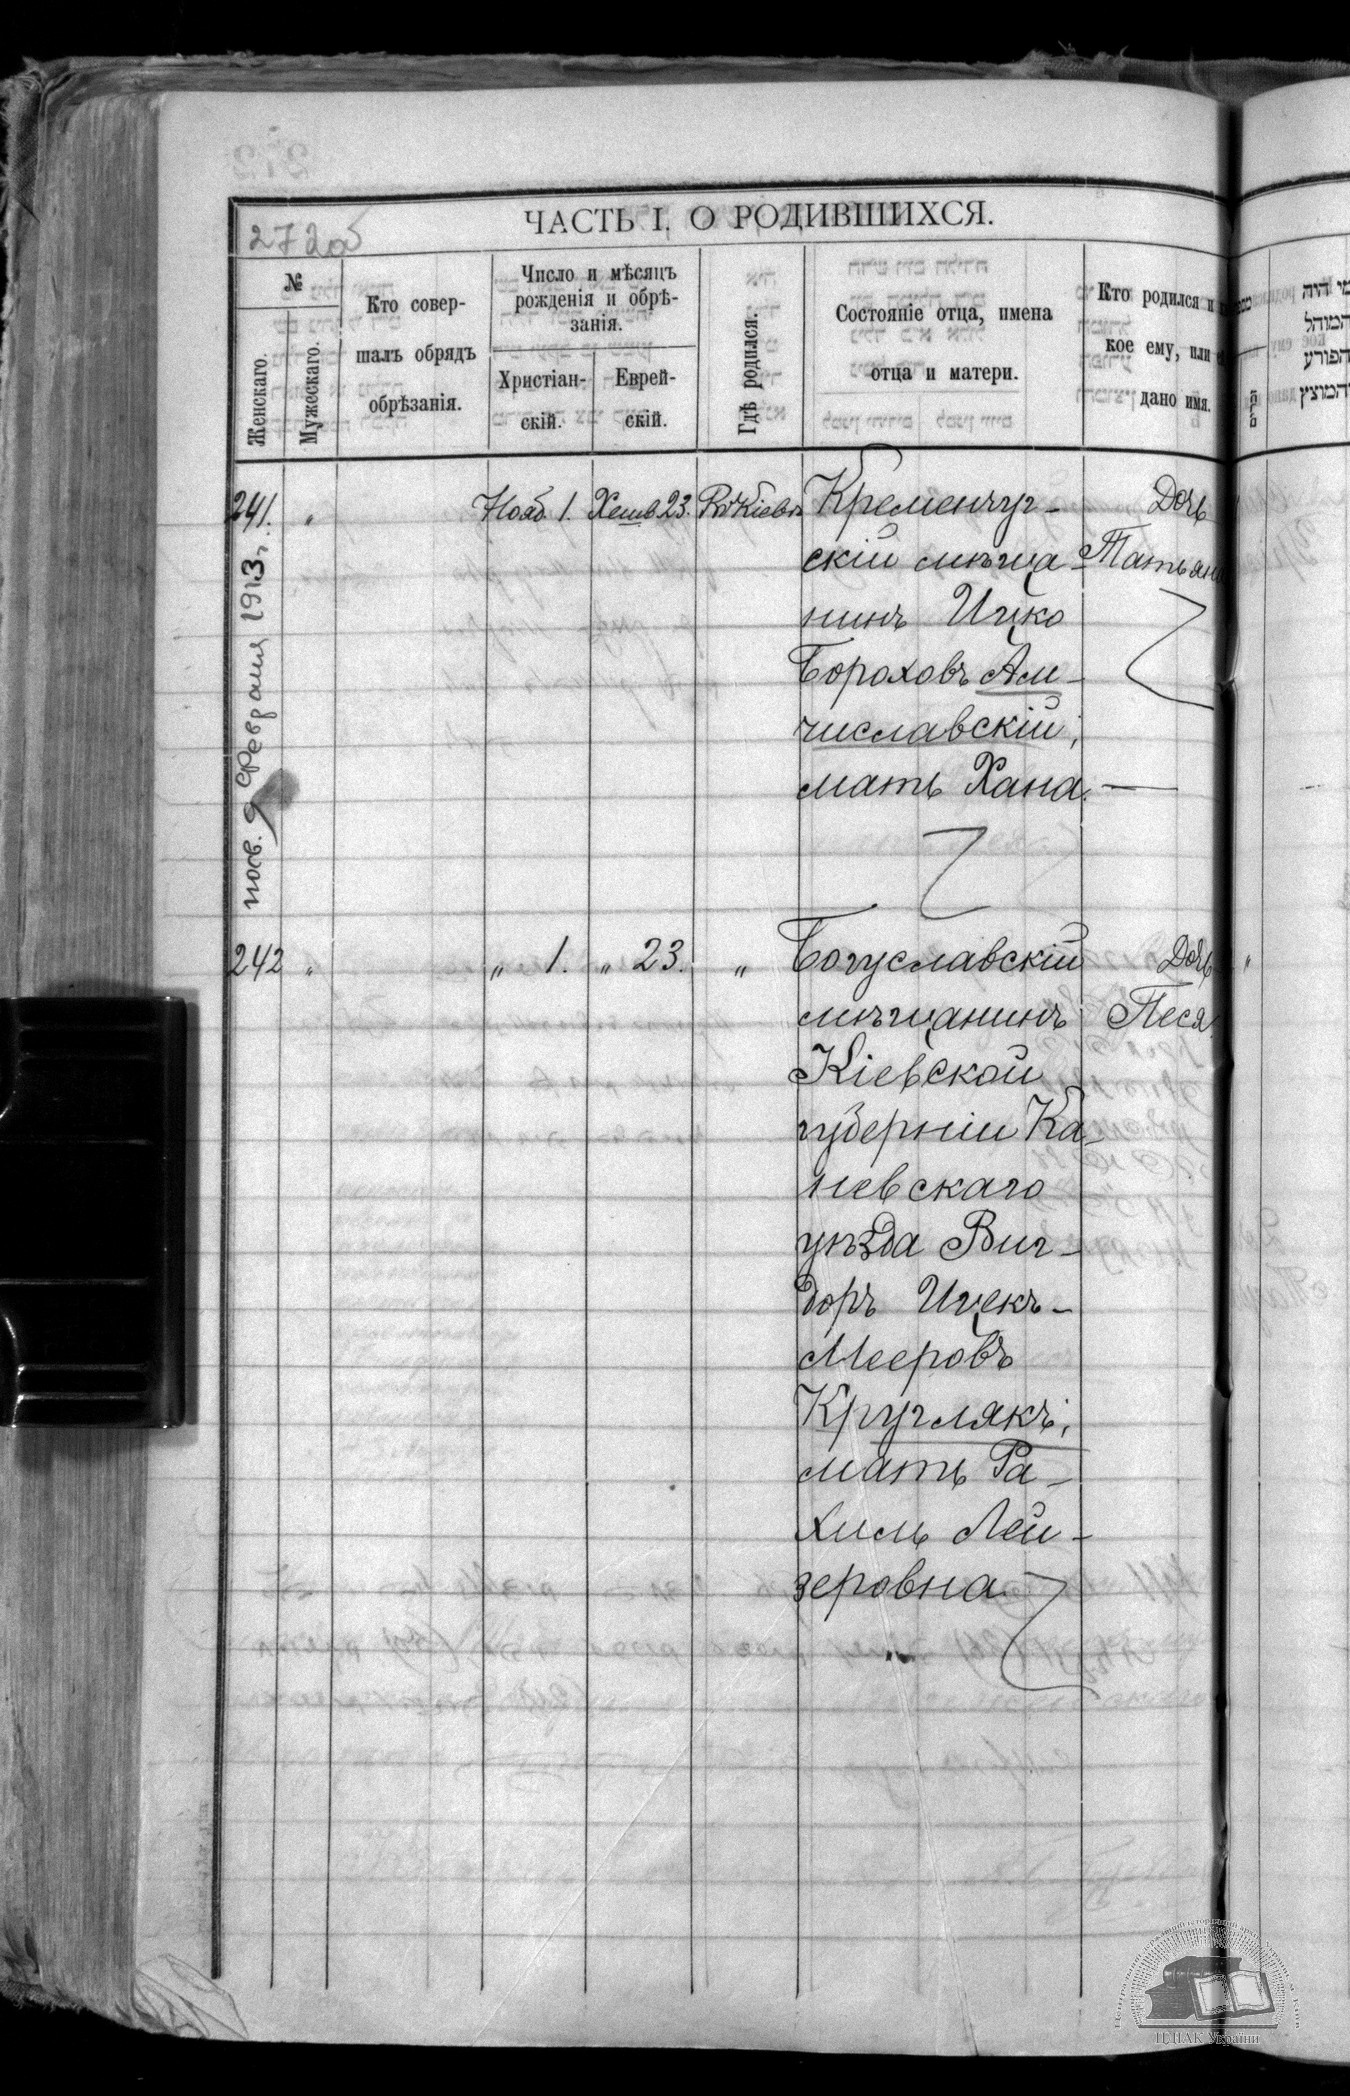 272об
ЧАСТЬ I. О РОДИВШИХСЯ.
№
Женскаго.
Мужескаго.
Кто совер-
шалъ обрядъ
обрѣзанія.
Число и мѣсяцъ
рожденія и обрѣ-
занія.
Христіан-
скій.
Еврей-
скій.
Гдѣ родился.
Состояніе отца, имена
отца и матери.
Кто родился и
кое ему, или
дано имя.
241.
"
Нояб. 1.
Хешв 23.
Въ Кіевѣ
Кременчуг-
скій мѣща-
нинъ Ицко
Бороховъ Ам-
числавскій;
мать Хана. —
Дочь
Татьяна
пов. 9 Февраля 1913 г.
242
"
" 1.
" 23.
"
Богуславскій
мѣщанинъ
Кіевской
губерніи Ка-
невскаго
уѣзда Виг-
доръ Ицекъ-
Мееровъ
Круглякъ;
мать Ра-
хиль Лей-
зеровна
Дочь
Песя
"
היה
המוהל
הפורע
והמוצץ
ЦДІАК України